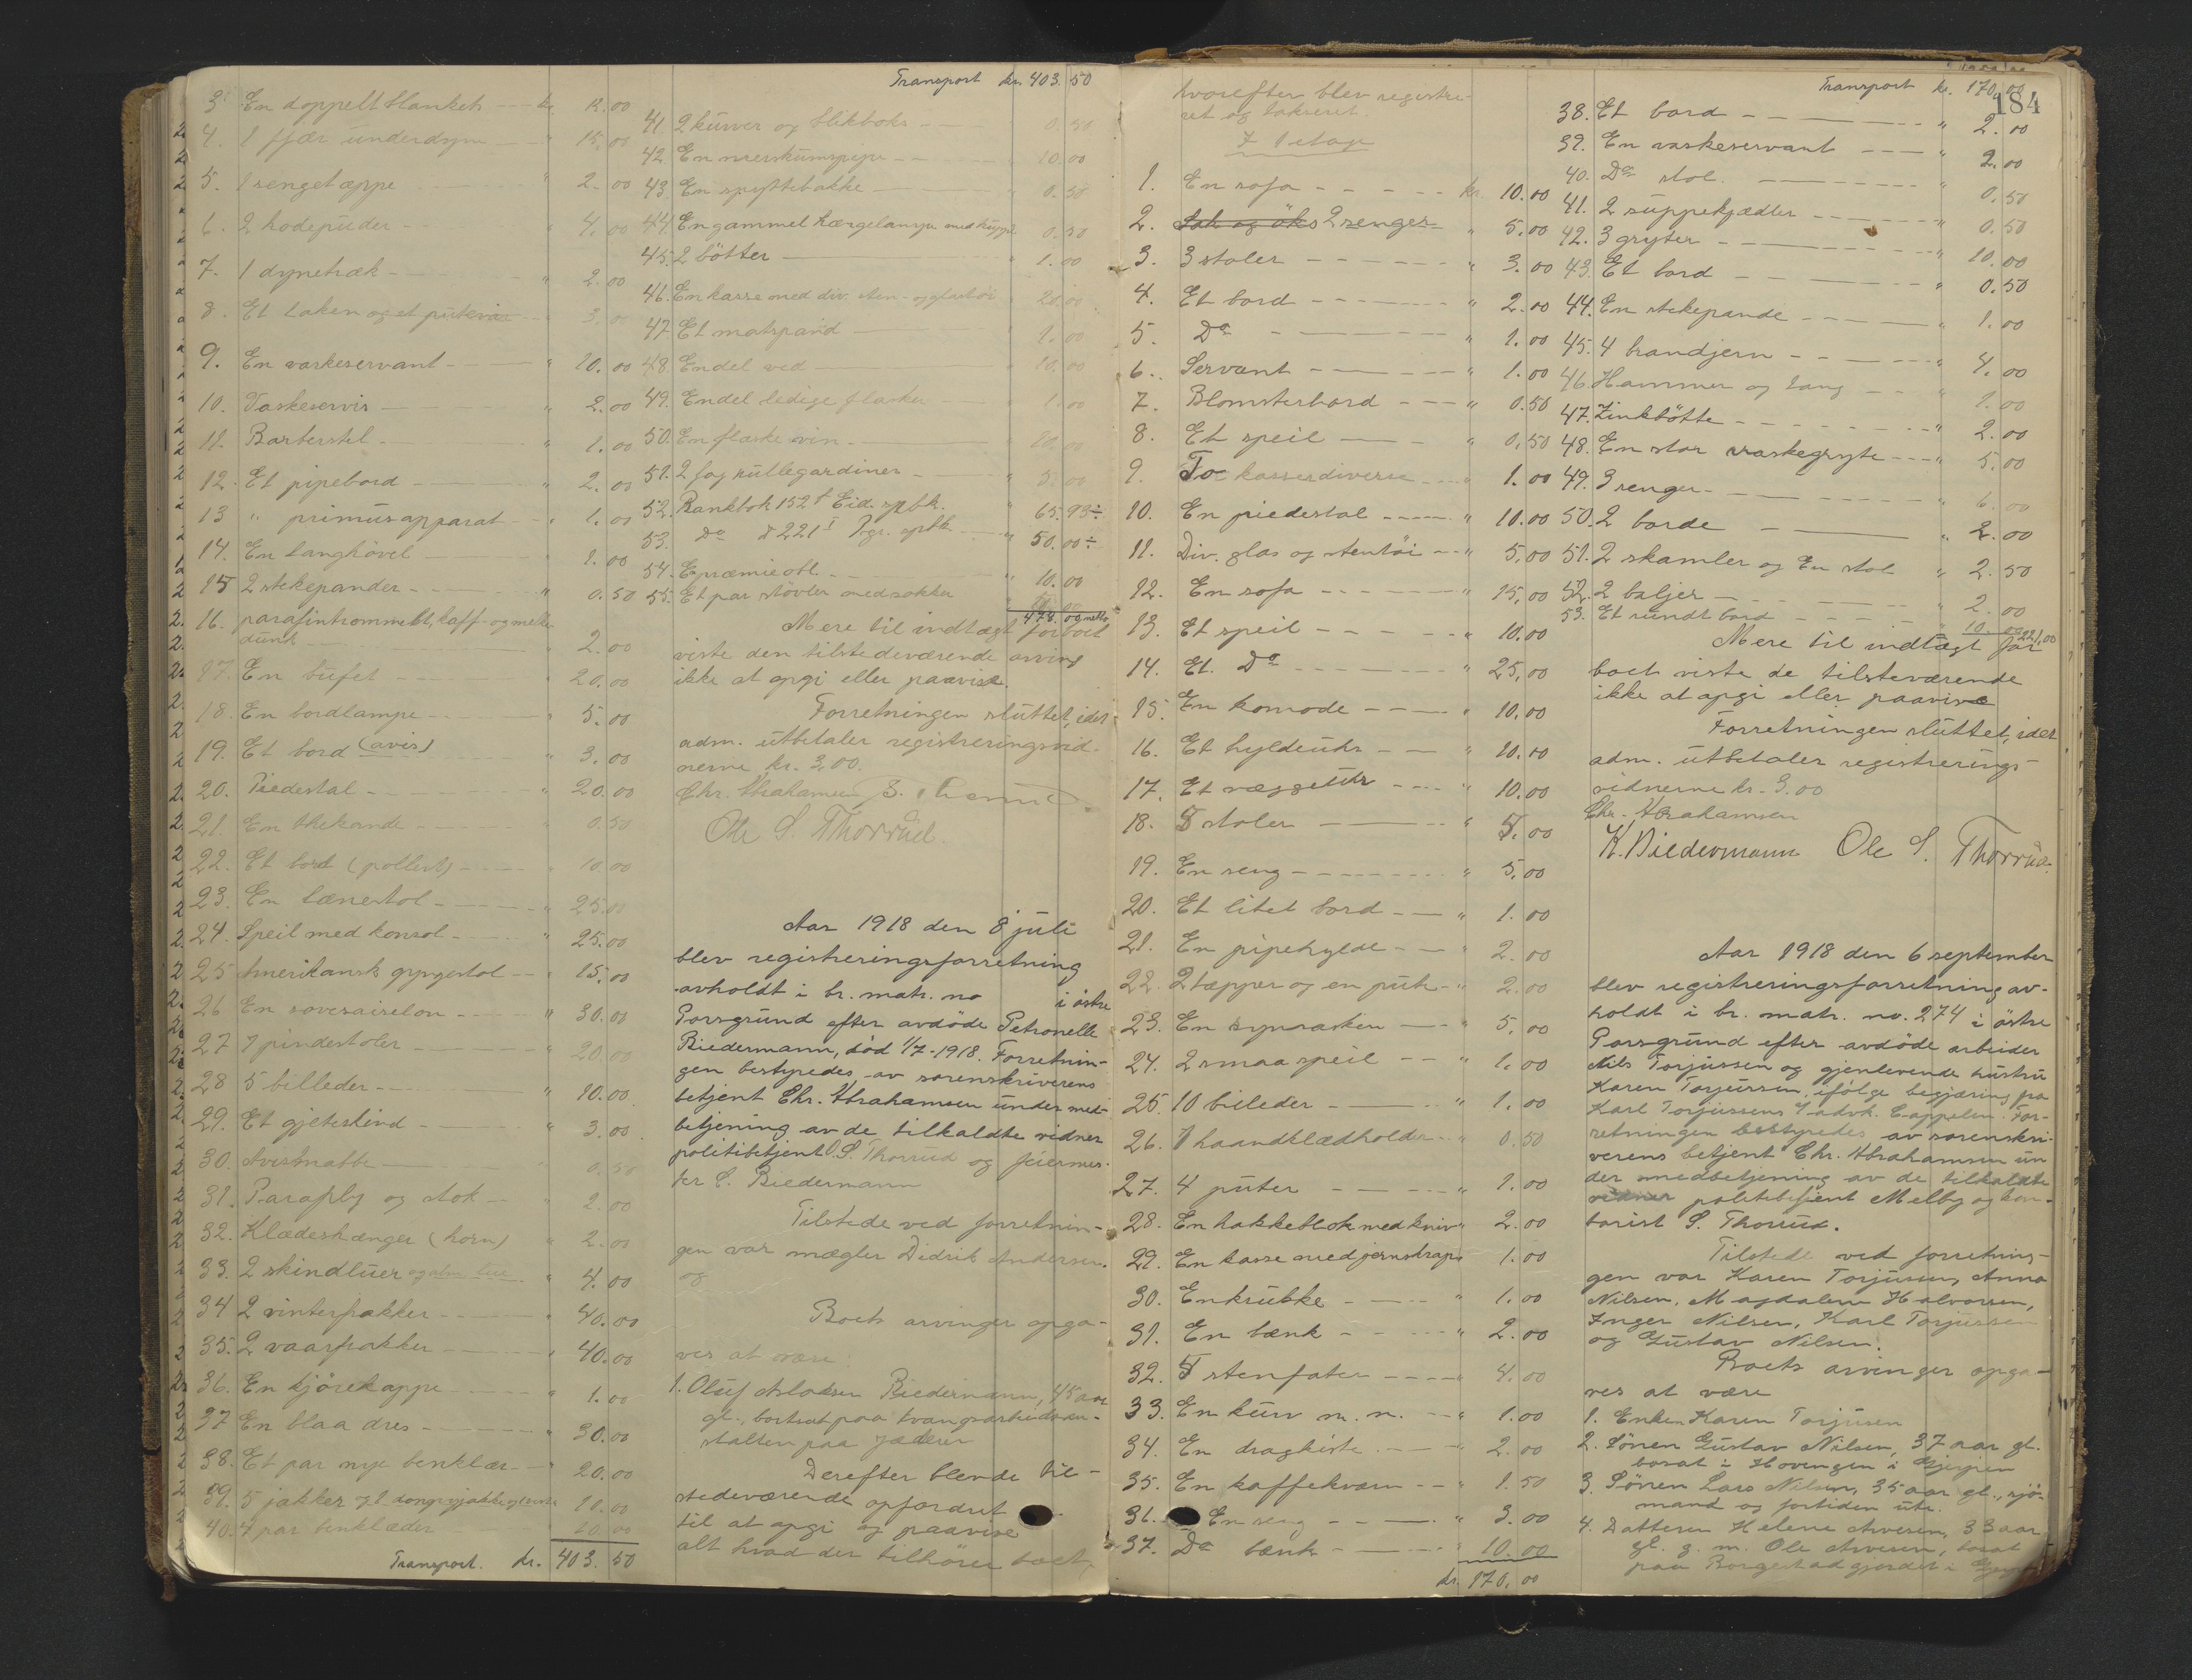 3. En doppelt blanket kr. 12.00
4. 1 fjær underdyne " 15.00
5. 1 sengetæppe " 2.00
6. 2 hodepuder " 4.00
7. 1 dynetræk " 2.00
8. Et laken og et putevar " 3.00
9. En vaskeservant " 10.00
10. Vaskeservis " 2.00
11. Barberstel " 1.00
12. Et pipebord " 2.00
13 " primusapparat " 1.00
14. En langhövel " 1.00
15 2 stekepander " 0.50
16. parafintrommel, kaff- og melke
dunk " 2.00
17. En bufet " 20.00
18. En bordlampe " 5.00
19. Et bord (avis) " 3.00
20. Piedestal " 20.00
21. En thekande " 0.50
22. Et bord (pollert) " 10.00
23. En lænestol " 25.00
24. Speil med konsol " 25.00
25 Amerikansk gyngestol " 15.00
26 En sovesaiselon " 30.00
27 7 pindestoler " 20.00
28 5 billeder " 10.00
29. Et gjeteskind " 3.00
30. 0.50
31. Paraply og stok " 2.00
32. Klædeshænger (horn) " 2.00
33. 2 skindluer " 4.00
34 2 vinterfrakker " 40.00
35. 2 vaarfrakker " 40.00
36. En kjörekappe " 1.00
37 En blaa dres " 30.00
38. Et par nye benklær " 20.00
39. 5 jakker 10.00
40. 4 par benklæder 10.00
Transport. kr. 403.50
Transport kr. 403.50
41. 2 kurver og blikboks 0.50
42. En merskumspipe " 10.00
43. En spyttebakke " 0.50
44. En gammel hængelampe med 0.50
45. 2 bötter " 1.00
46. En kasse med div. sten- og glastöi " 20.00
47. Et matspand " 1.00
48. Endel ved " 10.00
49. Endel ledige flasker " 1.00
50. En flaske vin
51. 2 fag rullegardiner " 3.00
52. Bankbok 152 Eid. spbk. " 65.93
53. Do 221 Pgr. spbk " 50.00
54. E præmieobl. " 10.00
55. Et par støvler med sokker
478.00
Mere til indtægt for boet
viste den tilstedeværende arving
ikke at opgi eller paavise.
Forretningen sluttet, idet
adm. utbetaler registreringsvid-
nerne kr. 3,00.
Chr. Abrahamsen
Ole S. Thorrud.
Aar 1918 den 8 juli
blev registreringsforretning
avholdt i br. matr. no i östre
Porsgrund efter avdöde Petronelle
Biedermann, död 1/7-1918. Forretnin-
gen bestyredes av sorenskriverens
betjent Chr. Abrahamsen under med-
betjening av de tilkaldte vidner
politibetjent O. S. Thorrud og feiermes-
ter C. Biedermann
Tilstede ved forretnin-
gen var mægler Didrik Andersen.
og
Boets arvinger opga-
ves at være
1. Oluf Biedermann, 45 aar
gl., bortsat paa tvangsarbeidsan-
stalten paa Jæderen
Derefter blev de til-
stedeværende opfordret
til at opgi og paavise
alt hvad der tilhörer boet,
hvorefter blev registre-
ret og takseret.
I 1 etage
1. En sofa kr. 10.00
2. 2 senger " 5.00
3. 3 stoler " 3.00
4. Et bord " 2.00
5. Do " 1.00
6. Servant " 1.00
7. Blomsterbord " 0.50
8. Et speil " 0.50
9. To kasser diverse " 1.00
10. En piedestal " 10.00
11. Div. glas og stentöi " 5.00
12. En sofa " 15.00
13. Et speil " 10.00
14. Et Do " 25.00
15. En komode " 10.00
16. Et hyldeuhr " 10.00
17. Et væggeuhr " 10.00
18. 5 stoler " 5.00
19. En seng " 5.00
20. Et litet bord " 1.00
21. En pipehylde " 2.00
22. 2 tæpper og en pute " 2.00
23. En symaskin " 5.00
24. 2 smaa speil " 1.00
25. 10 billeder " 1.00
26. 1 haandklædholder " 0.50
27. 4 puter " 1.00
28. En hakkeblok med kniv " 2.00
29. En kasse med jernskrap " 1.00
30. En krubke " 1.00
31. En bænk " 2.00
32. 5 stenfater " 4.00
33. En kurv m. m. " 1.00
34. En dragkiste " 2.00
35. En kaffekværn " 1.50
36. En seng " 3.00
37. Do bænk " 10.00
kr. 170.00
184
Transport kr. 170.00
38. Et bord " 2.00
39. En vaskeservant " 2.00
40. Do stol. " 0.50
41. 2 suppekjædler " 0.50
42. 3 gryter " 10.00
43. Et bord " 0.50
44. En stekepande " 1.00
45. 4 brandjern " 4.00
46. Hammer og tang " 1.00
47. Zinkbötte " 2.00
48. En stor vaskegryte " 5.00
49. 3 senger " 6.00
50. 2 borde " 2.00
51. 2 skamler og En stol " 2.50
52. 2 baljer " 2.00
53. Et rundt bord " 10.00
221.00
Mere til indtægt for
boet viste de tilsteværende
ikke at opgi eller paavise
Forretningen sluttet, idet
adm. utbetaler registrerings-
vidnerne kr. 3.00
Chr. Abrahamsen
K. Biedermann Ole S. Thorrud.
Aar 1918 den 6 september
blev registreringsforretning av-
holdt i br. matr. no. 274 i östre
Porsgrund efter avdöde arbeider
Nils Torjussen og gjenlevende hustru
Karen Torjussen, ifölge begjæring fra
Karl Torjussens advk. Cappelen. For-
retningen bestyredes av sorenskri-
verens betjent Chr. Abrahamsen un
der medbetjening av de tilkaldte
vidner politibetjent Melby og kon-
torist S. Thorrud.
Tilstede ved forretnin-
gen var Karen Torjussen, Anna
Nilsen, Magdalene Halvorsen,
Inger Nilsen, Karl Torjussen
og Gustav Nilsen.
Boets arvinger opga-
ves at være
1. Enken Karen Torjusen
2. Sönen Gustav Nilsen, 37 aar gl.
bosat i Hovengen i Gjerpen
3. Sönen Lars Nilsen, 35 aar gl., sjö-
mand og fortiden ute.
4. Datteren Helene Arvesen, 33 aar
gl. g. m. Ole Arvesen, bosat
paa Borgestadgjerdet i Gjerpen